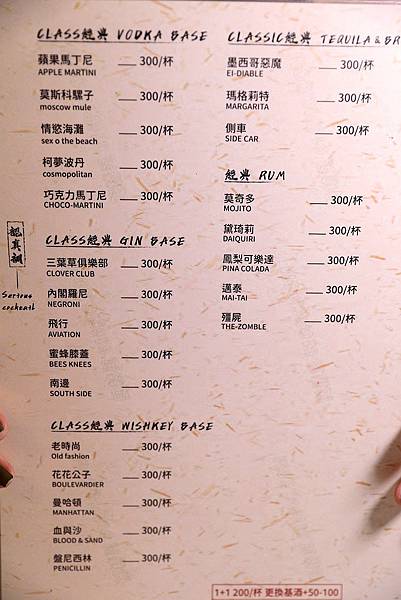 CLASS經典 VODKA BASE
蘋果馬丁尼 300/杯
APPLE MARTINI
莫斯科騾子 300/杯
moscow mule
情慾海灘 300/杯
sex o the beach
柯夢波丹 300/杯
cosmopolitan
巧克力馬丁尼 300/杯
CHOCO-MARTINI
認真調
Serious
cockeath
CLASS經典 GIN BASE
三葉草俱樂部 300/杯
CLOVER CLUB
內閣羅尼 300/杯
NEGRONI
飛行 300/杯
AVIATION
蜜蜂膝蓋 300/杯
BEES KNEES
南邊 300/杯
SOUTH SIDE
CLASS經典 WISHKEY BASE
老時尚 300/杯
Old fashion
花花公子 300/杯
BOULEVARDIER
曼哈頓 300/杯
MANHATTAN
血與沙 300/杯
BLOOD & SAND
盤尼西林 300/杯
PENICILLIN
CLASSIC經典 TEQUILA & BR
墨西哥惡魔 300/杯
EI-DIABLE
瑪格莉特 300/杯
MARGARITA
側車 300/杯
SIDE CAR
經典 RUM
莫奇多 300/杯
MOJITO
黛琦莉 300/杯
DAIQUIRI
鳳梨可樂達 300/杯
PINA COLADA
邁泰 300/杯
MAI-TAI
殭屍 300/杯
THE-ZOMBLE
1+1 200/杯 更換基酒+50-100